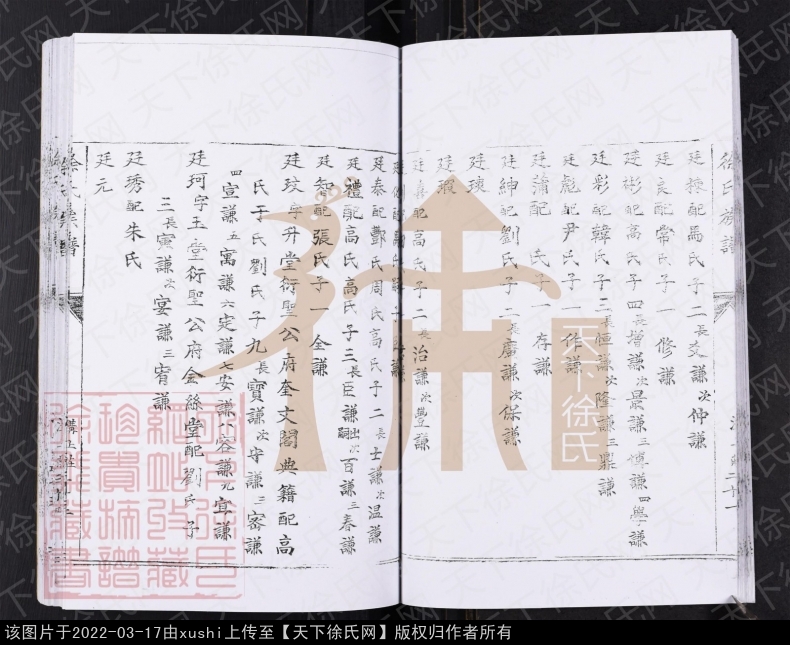 徐氏族譜
廷棟配馬氏子二長文謙次仲謙
廷良配常氏子一修謙
廷彬配高氏子四長增謙次最謙三博謙四學謙
廷彩配韓氏子三長恒謙次隆謙三鼎謙
廷彪配尹氏子一作謙
廷蒲配 氏子一存謙
廷紳配劉氏子二長廣謙次保謙
廷瑓
廷瑕
廷喜配高氏子二長治謙次豐謙
廷泰配鄷氏周氏高氏子二長士謙次温謙
廷禮配高氏高氏子三長臣謙次百謙出嗣三春謙
廷智配張氏子一全謙
廷玟字升堂衍聖公府奎文閣典籍配高
氏于氏劉氏子九長寳謙次守謙三密謙
四宣謙五寓謙六定謙七安謙八容謙九宜謙
廷珂字玉堂衍聖公府金絲堂配劉氏子
三長寅謙次宴謙三宥謙
廷琇配朱氏
廷元
徐氏族譜
天下徐氏
天下徐氏网
该图片于2022-03-17由xushi上传至【天下徐氏网】版权归作者所有